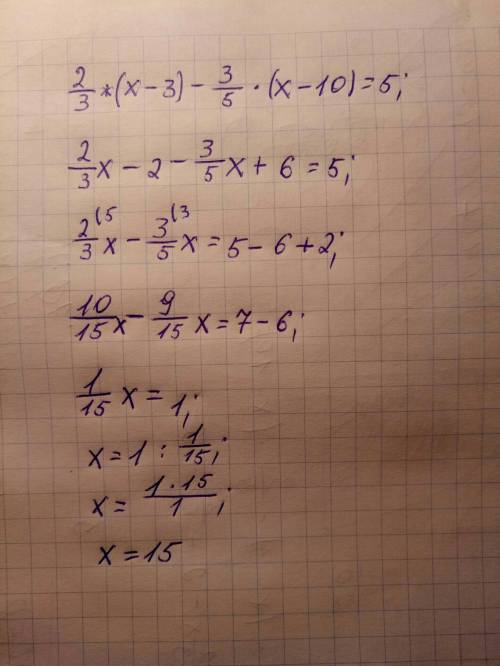 2/3 * (x - 3) - 3/5 · (x - 10) = 5;
2/3 x - 2 - 3/5 x + 6 = 5;
2/3 (5 x - 3/5 (3 x = 5 - 6 + 2;
10/15 x - 9/15 x = 7 - 6;
1/15 x = 1;
x = 1 : 1/15;
x = 1 · 15/1;
x = 15